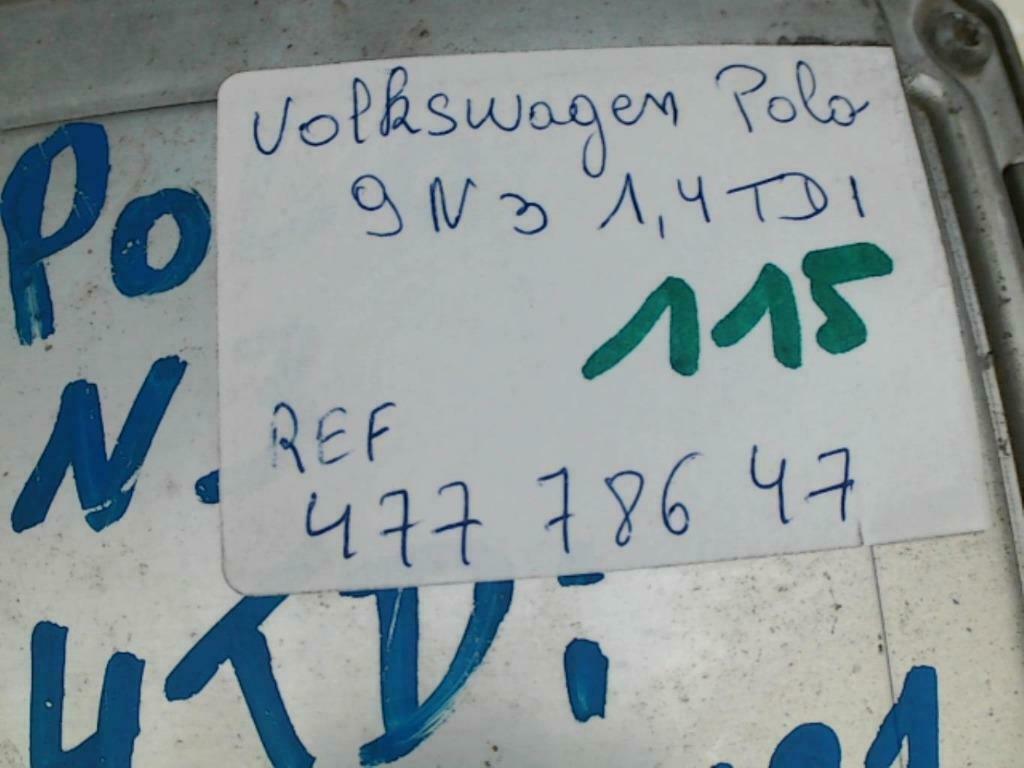 Volkswagen Polo
9N3 1,4 TDI
115
REF
477 786 47
Po
N.
4TDi